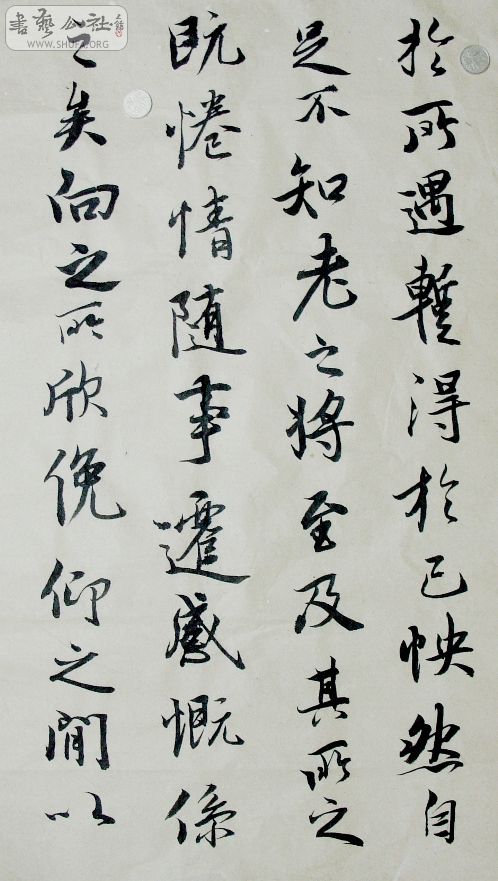 於所遇暫得於己怏然自
足不知老之將至及其所之
既惓情隨事遷感慨係
之矣向之所欣俛仰之閒以
書藝公社
WWW.SHUFA.ORG